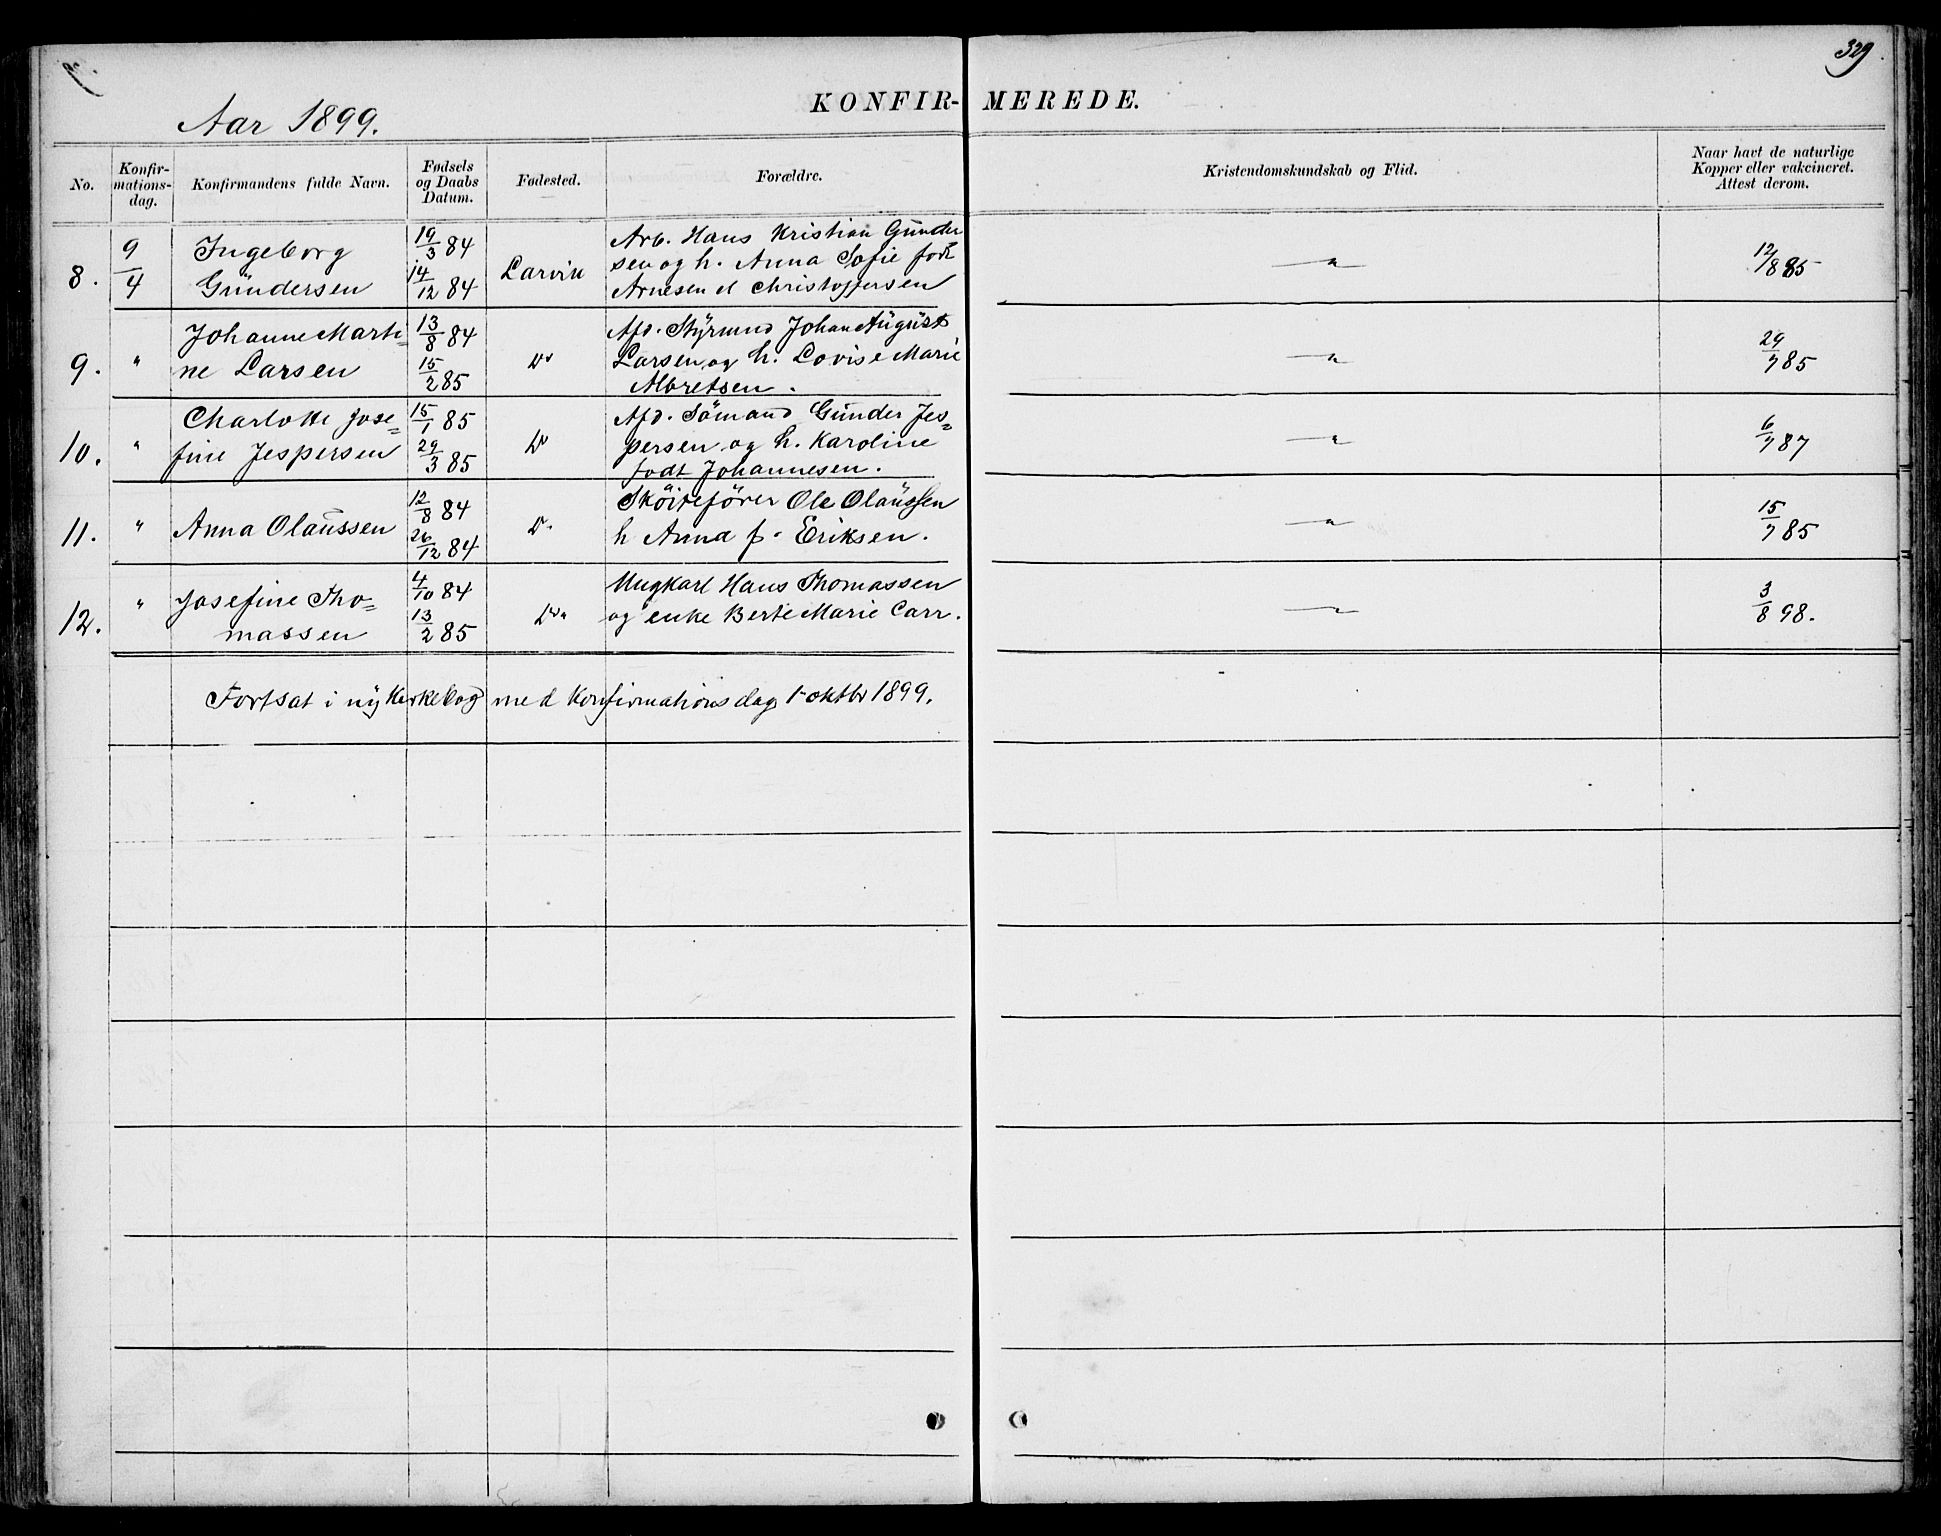 329.
KONFIR- MEREDE.
Aar 1899.
No. | Konfir-mations-dag. | Konfirmandens fulde Navn. | Fødsels og Daabs Datum. | Fødested. | Forældre. | Kristendomskundskab og Flid. | Naar havt de naturlige Kopper eller vakcineret. Attest derom.
8. | 9/4 | Ingeborg Gundersen | 19/3 84 14/12 84 | Larvik | Arb. Hans Kristian Gundersen og h. Anna Sofie født Arnesen el Christophersen | — " — | 12/8 85
9. | " | Johanne Marti=ne Larsen | 13/8 84 15/2 85 | Do | Afd. Styrmd Johan August Larsen og h. Lovise Marie Albretsen. | — " — | 29/7 85
10. | " | Charlotte Jose=fine Jespersen | 15/1 85 29/3 85 | Do | Afd. Sömand Gunder Jes=persen og h. Karoline født Johannesen. | — " — | 6/7 87
11. | " | Anna Olaussen | 12/8 84 26/12 84 | Do. | Sköiteförer Ole Olaussen h Anna f. Eriksen. | — " — | 15/7 85
12. | " | Josefine Tho=massen | 4/10 84 13/2 85 | Do. | Ungkarl Hans Thomassen og enke Berte Marie Carr. | — " — | 3/8 98.
Fortsat i ny Kirkebog med Konfirmationsdag 1 oktbr 1899.